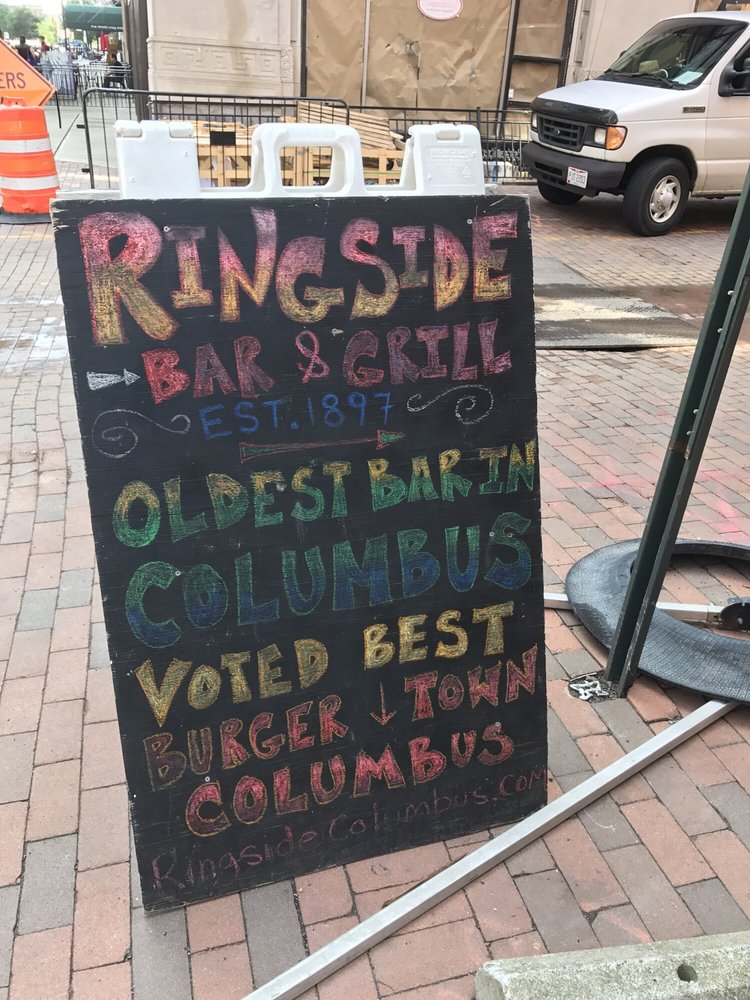 ERS
RINGSIDE
BAR & GRILL
EST. 1897
OLDEST BAR IN
COLUMBUS
VOTED BEST
BURGER ↓ TOWN
COLUMBUS
RingsideColumbus.com